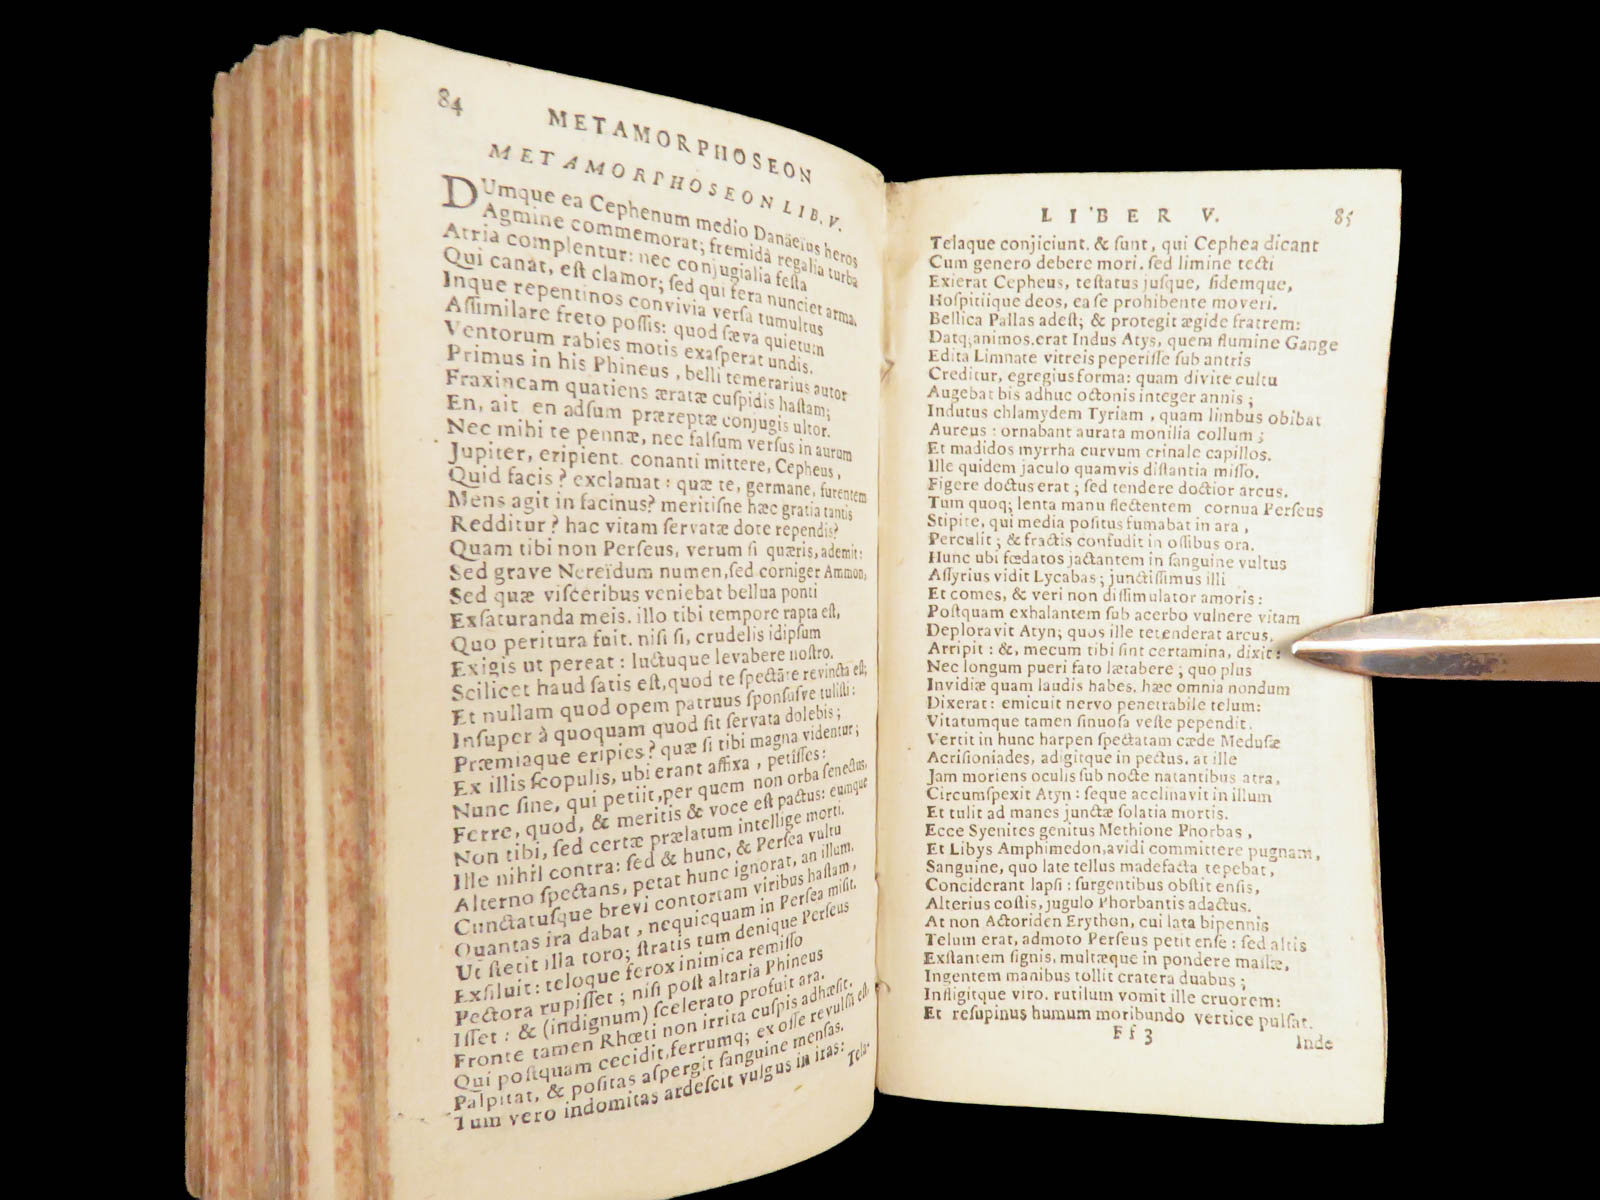 84
METAMORPHOSEON
METAMORPHOSEON LIB. V.
DUmque ea Cephenum medio Danaëius heros
Agmine commemorat; fremidâ regalia turba
Atria complentur: nec conjugialia festa
Qui canat, est clamor; sed qui fera nunciet arma.
Inque repentinos convivia versa tumultus
Assimilare freto possis: quod sæva quietum
Ventorum rabies motis exasperat undis.
Primus in his Phineus, belli temerarius autor
Fraxineam quatiens æratæ cuspidis hastam;
En, ait en adsum præreptæ conjugis ultor.
Nec mihi te pennæ, nec falsum versus in aurum
Jupiter, eripient. conanti mittere, Cepheus,
Quid facis? exclamat: quæ te, germane, furentem
Mens agit in facinus? meritisne hæc gratia tantis
Redditur? hac vitam servatæ dote rependis?
Quam tibi non Perseus, verum si quæris, ademit:
Sed grave Nereïdum numen, sed corniger Ammon,
Sed quæ visceribus veniebat bellua ponti
Exsaturanda meis. illo tibi tempore rapta est,
Quo peritura fuit. nisi si, crudelis idipsum
Exigis ut pereat: luctuque levabere nostro.
Scilicet haud satis est, quod te spectare revincta est;
Et nullam quod opem patruus sponsusve tulisti:
Insuper à quoquam quod sit servata dolebis;
Præmiaque eripies? quæ si tibi magna videntur;
Ex illis scopulis, ubi erant affixa, petisses:
Nunc sine, qui petiit, per quem non orba senectus,
Ferre, quod, & meritis & voce est pactus: eumque
Non tibi, sed certæ prælatum intellige morti.
Ille nihil contra: sed & hunc, & Persea vultu
Alterno spectans, petat hunc ignorat, an illum.
Cunctatusque brevi contortam viribus hastam,
Quantas ira dabat, nequicquam in Persea misit.
Ut stetit illa toro; stratis tum denique Perseus
Exsiluit: teloque ferox inimica remisso
Pectora rupisset; nisi post altaria Phineus
Isset: & (indignum) scelerato profuit ara.
Fronte tamen Rhœti non irrita cuspis adhæsit.
Qui postquam cecidit, ferrumq; ex osse revulsum est,
Palpitat, & positas aspergit sanguine mensas.
Tum vero indomitas ardescit vulgus in iras:
Tela-
LIBER V.
85
Telaque conjiciunt. & sunt, qui Cephea dicant
Cum genero debere mori. sed limine tecti
Exierat Cepheus, testatus jusque, fidemque,
Hospitiique deos, ea se prohibente moveri.
Bellica Pallas adest; & protegit ægide fratrem:
Datq; animos. erat Indus Atys, quem flumine Gange
Edita Limnate vitreis peperisse sub antris
Creditur, egregius forma: quam divite cultu
Augebat bis adhuc octonis integer annis;
Indutus chlamydem Tyriam, quam limbus obibat
Aureus: ornabant aurata monilia collum;
Et madidos myrrha curvum crinale capillos.
Ille quidem jaculo quamvis distantia misso.
Figere doctus erat; sed tendere doctior arcus.
Tum quoq; lenta manu flectentem cornua Perseus
Stipite, qui media positus fumabat in ara,
Perculit; & fractis confudit in ossibus ora.
Hunc ubi fœdatos jactantem in sanguine vultus
Assyrius vidit Lycabas; junctissimus illi
Et comes, & veri non dissimulator amoris:
Postquam exhalantem sub acerbo vulnere vitam
Deploravit Atyn; quos ille tetenderat arcus,
Arripit: &, mecum tibi sint certamina, dixit:
Nec longum pueri fato lætabere; quo plus
Invidiæ quam laudis habes. hæc omnia nondum
Dixerat: emicuit nervo penetrabile telum:
Vitatumque tamen sinuosa veste pependit.
Vertit in hunc harpen spectatam cæde Medusæ
Acrisioniades, adigitque in pectus. at ille
Jam moriens oculis sub nocte natantibus atra,
Circumspexit Atyn: seque acclinavit in illum
Et tulit ad manes junctæ solatia mortis.
Ecce Syenites genitus Methione Phorbas,
Et Libys Amphimedon, avidi committere pugnam,
Sanguine, quo late tellus madefacta tepebat,
Conciderant lapsi: surgentibus obstit ensis,
Alterius costis, jugulo Phorbantis adactus.
At non Actoriden Erython, cui lata bipennis
Telum erat, admoto Perseus petit ense: sed altis
Exstantem signis, multæque in pondere massæ,
Ingentem manibus tollit cratera duabus;
Infligitque viro. rutilum vomit ille cruorem:
Et resupinus humum moribundo vertice pulsat.
Ff 3
Inde